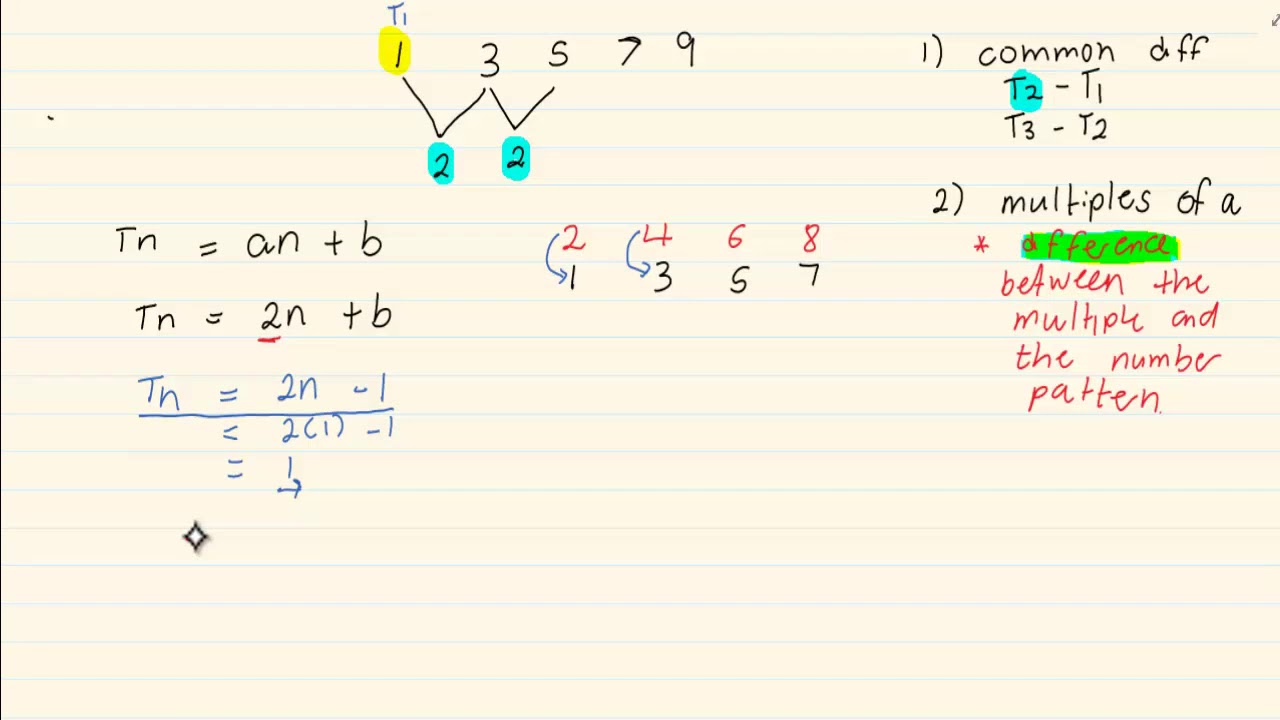 T1
1 3 5 7 9
2 2
Tn = an + b
Tn = 2n + b
Tn = 2n - 1
= 2(1) - 1
= 1
2 4 6 8
1 3 5 7
1) common diff
T2 - T1
T3 - T2
2) multiples of a
* difference
between the
multiple and
the number
pattern.